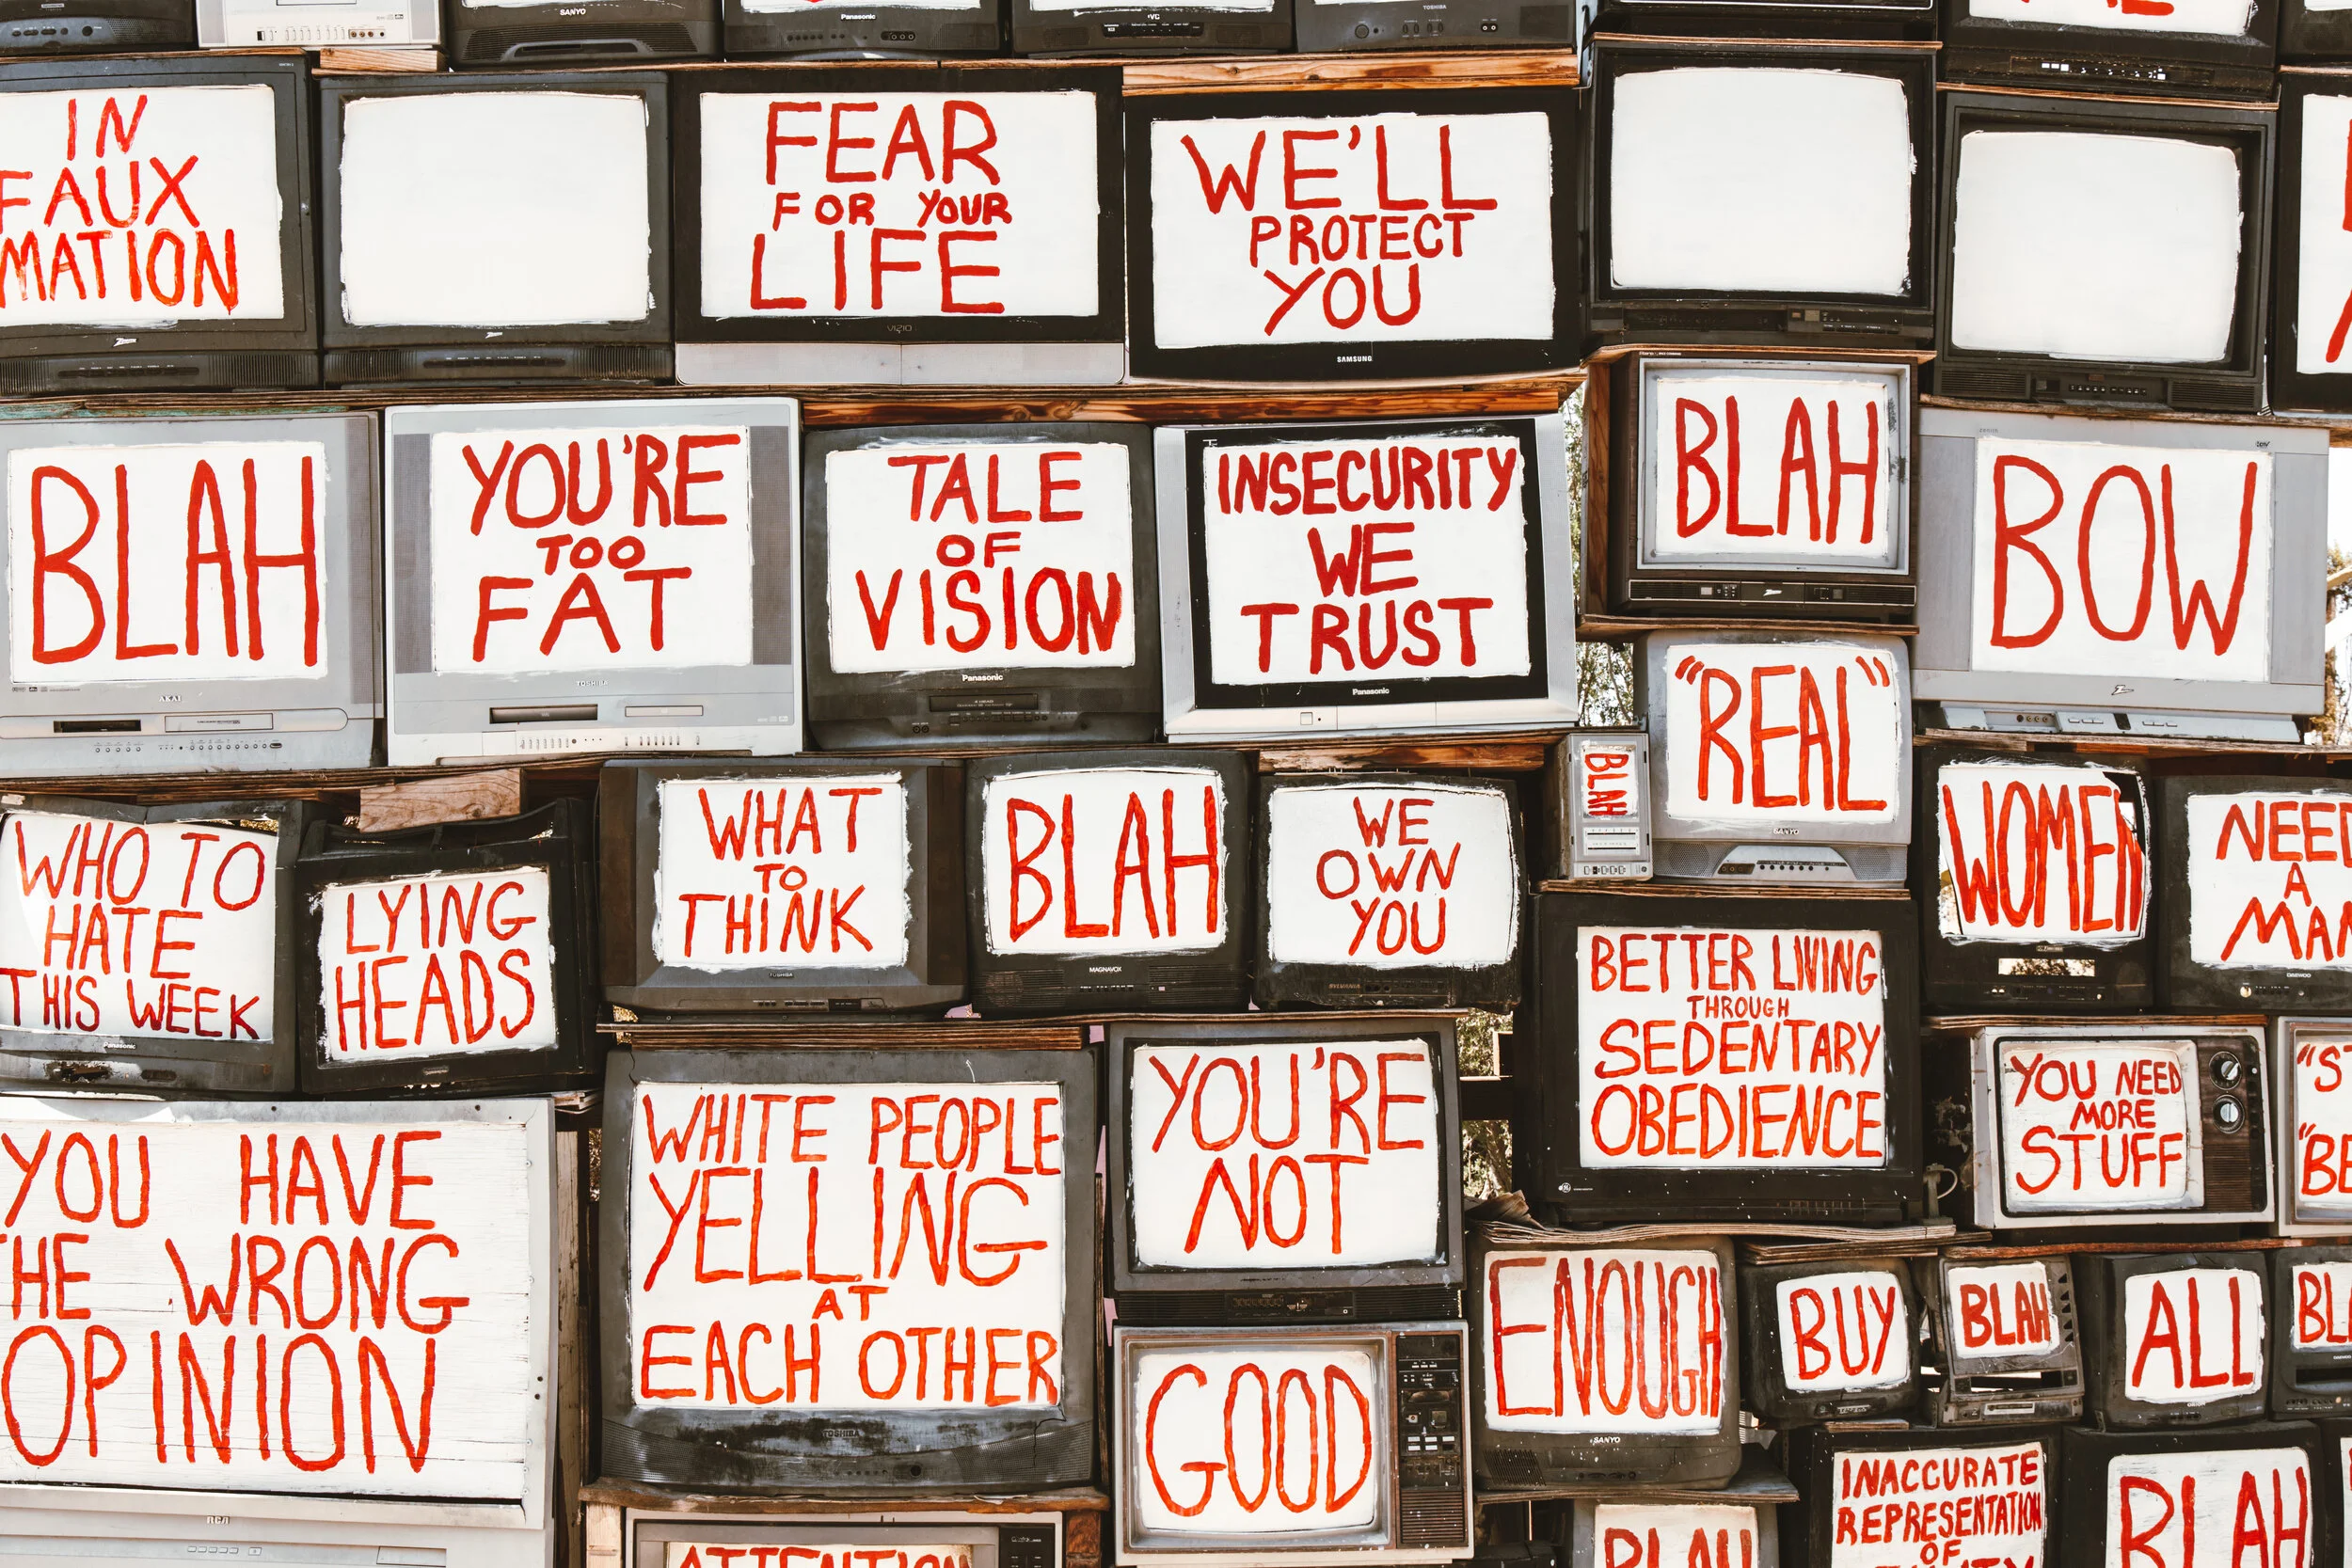 SANYO
Panasonic
JVC
TOSHIBA
IN
FAUX
MATION
FEAR
FOR YOUR
LIFE
VIZIO
WE'LL
PROTECT
YOU
SAMSUNG
BLAH
AKAI
YOU'RE
TOO
FAT
TOSHIBA
TALE
OF
VISION
Panasonic
INSECURITY
WE
TRUST
Panasonic
BLAH
BOW
"REAL"
SANYO
BLAH
WHO TO
HATE
THIS WEEK
Panasonic
LYING
HEADS
WHAT
TO
THINK
TOSHIBA
BLAH
MAGNAVOX
WE
OWN
YOU
SYLVANIA
WOMEN
NEED
A
MAN
DAEWOO
BETTER LIVING
THROUGH
SEDENTARY
OBEDIENCE
YOU NEED
MORE
STUFF
YOU HAVE
THE WRONG
OPINION
RCA
WHITE PEOPLE
YELLING
AT
EACH OTHER
TOSHIBA
YOU'RE
NOT
GOOD
ENOUGH
SANYO
BUY
BLAH
ALL
BL
ATTENTION
BLAH
INACCURATE
REPRESENTATION
OF
BLAH